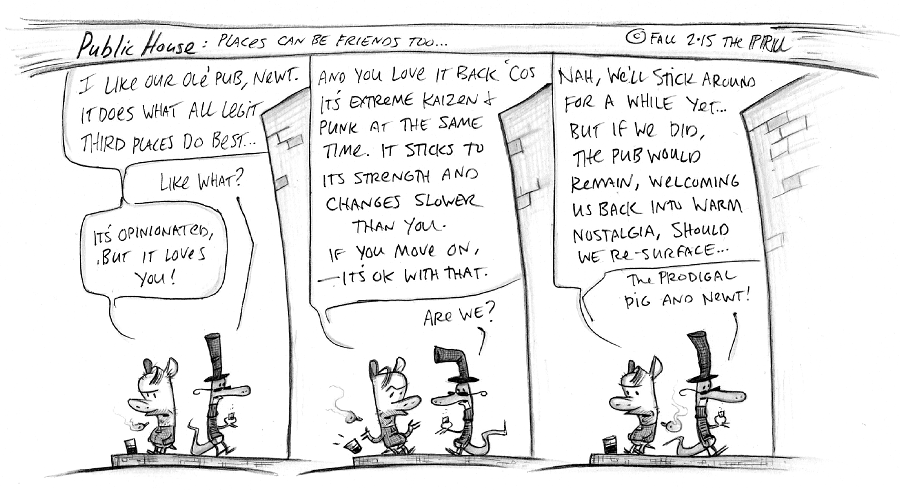 Public House: Places can be friends too...
© Fall 2.15 The
I like our ole' pub, Newt.
It does what all legit
third places do best...
Like what?
It's opinionated,
but it loves
you!
And you love it back 'cos
it's extreme kaizen &
punk at the same
time. It sticks to
its strength and
changes slower
than you.
If you move on,
– it's ok with that.
Are we?
Nah, we'll stick around
for a while yet...
But if we did,
the pub would
remain, welcoming
us back into warm
nostalgia, should
we re-surface...
The prodigal
pig and newt!